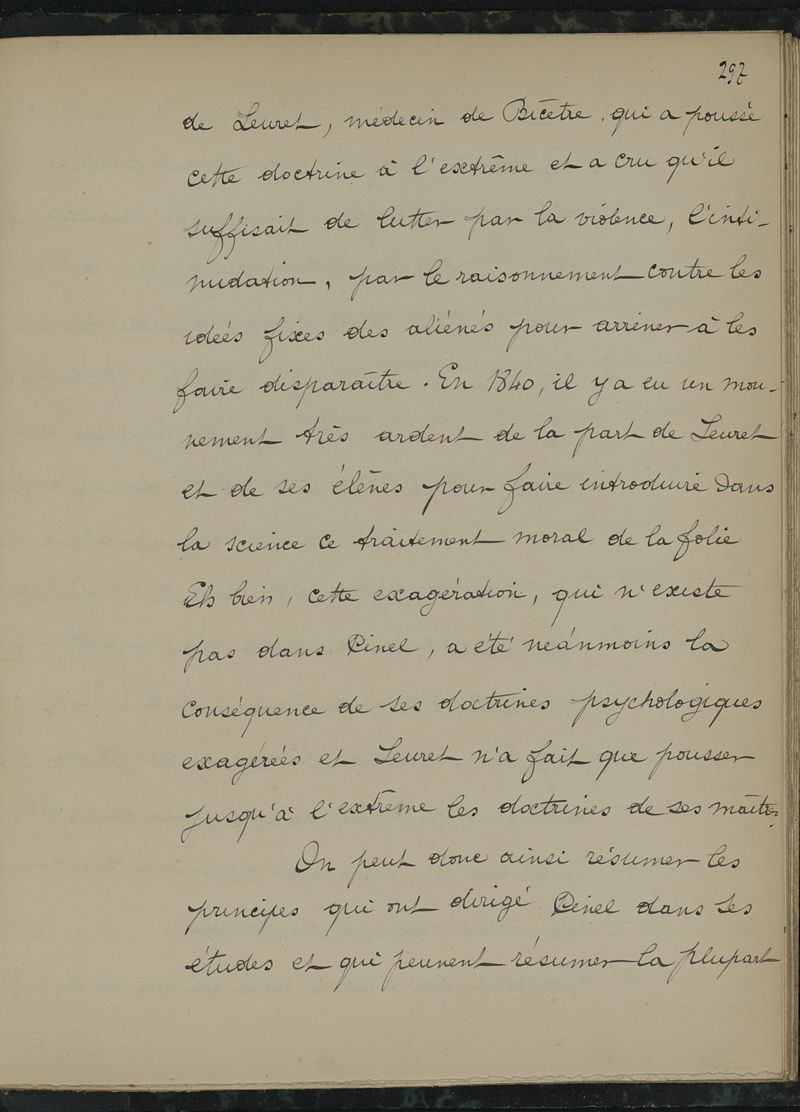 297
de Leuret, médecin de Bicêtre, qui a poussé
cette doctrine à l'extrême et a cru qu'il
suffisait de lutter par la violence, l'inti-
midation, par le raisonnement contre les
idées fixes des aliénés pour arriver à les
faire disparaître. En 1840, il y a eu un mou-
vement très ardent de la part de Leuret
et de ses élèves pour faire introduire dans
la science ce traitement moral de la folie
Eh bien, cette exagération, qui n'existe
pas dans Pinel, a été néanmoins la
conséquence de ses doctrines psychologiques
exagérées et Leuret n'a fait que pousser
jusqu'à l'extrême les doctrines de ses maîtres.
On peut donc ainsi résumer les
principes qui ont dirigé Pinel dans ses
études et qui peuvent résumer la plupart